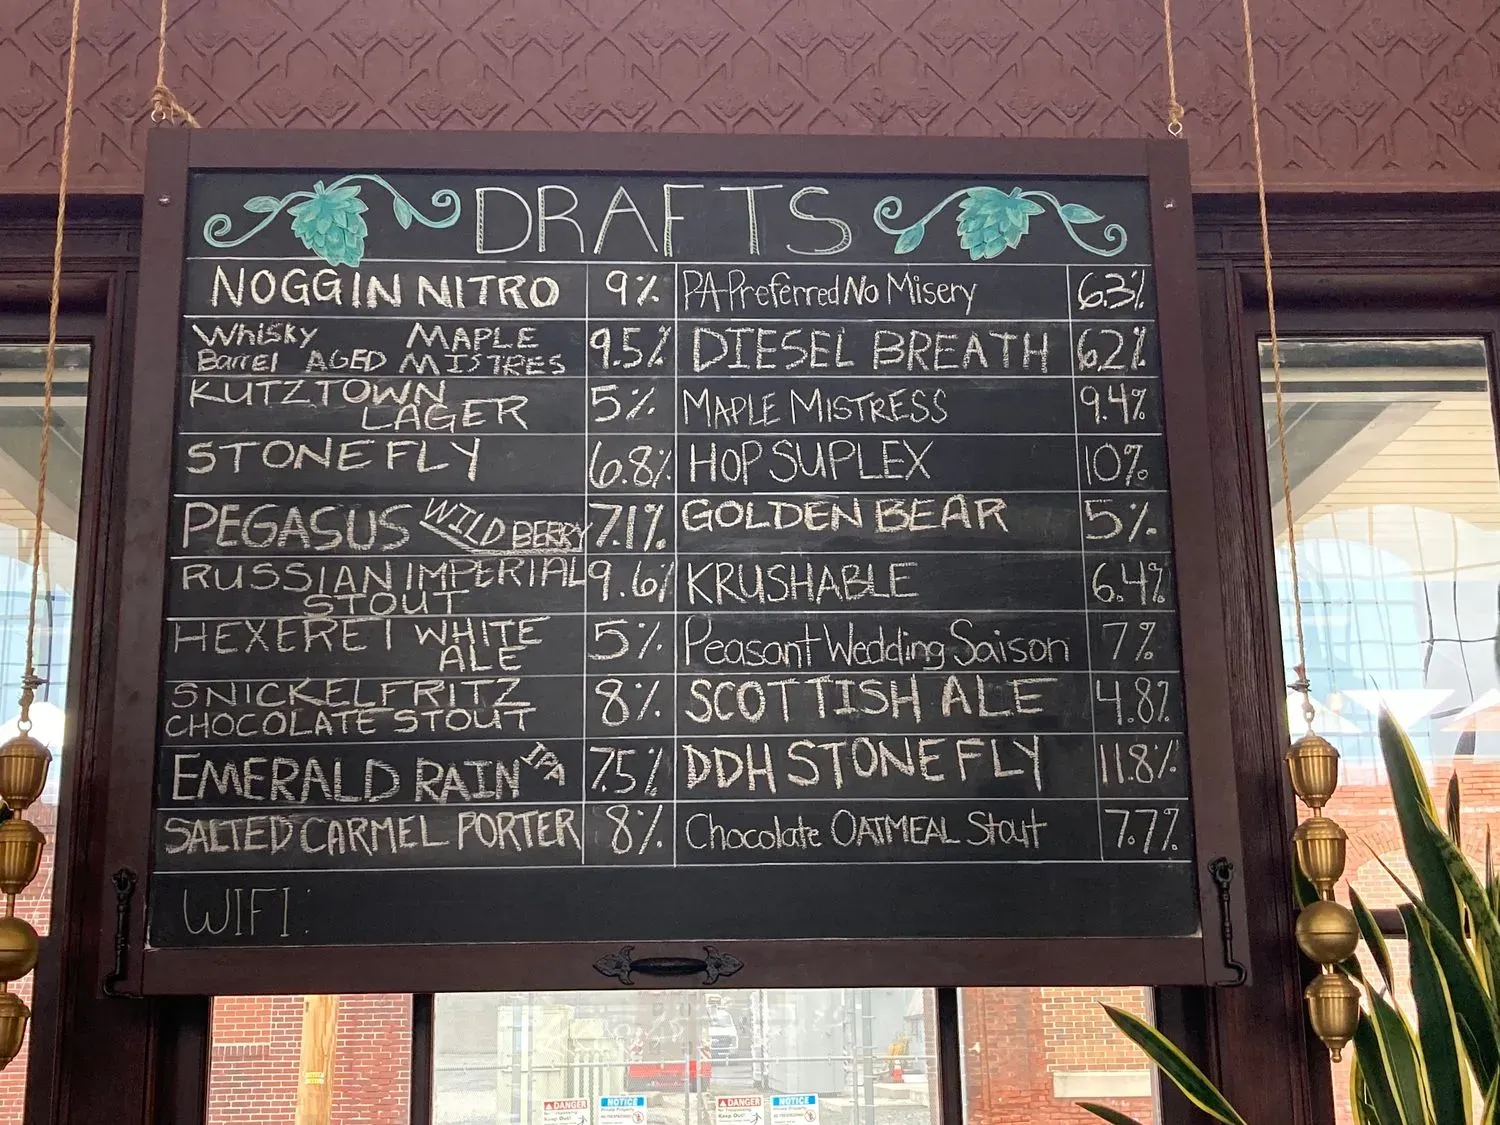 DRAFTS
NOGGIN NITRO 9%
Whisky MAPLE
Barrel AGED MISTRES 9.5%
KUTZTOWN
LAGER 5%
STONEFLY 6.8%
PEGASUS WILD BERRY 7.1%
RUSSIAN IMPERIAL
STOUT 9.6%
HEXEREI WHITE
ALE 5%
SNICKELFRITZ
CHOCOLATE STOUT 8%
EMERALD RAIN IPA 7.5%
SALTED CARMEL PORTER 8%
PA-Preferred No Misery 6.3%
DIESEL BREATH 6.2%
MAPLE MISTRESS 9.4%
HOP SUPLEX 10%
GOLDEN BEAR 5%
KRUSHABLE 6.4%
Peasant Wedding Saison 7%
SCOTTISH ALE 4.8%
DDH STONEFLY 11.8%
Chocolate OATMEAL Stout 7.7%
WIFI:
DANGER
Keep Out!
NOTICE
Private Property
DANGER
Keep Out!
NOTICE
Private Property